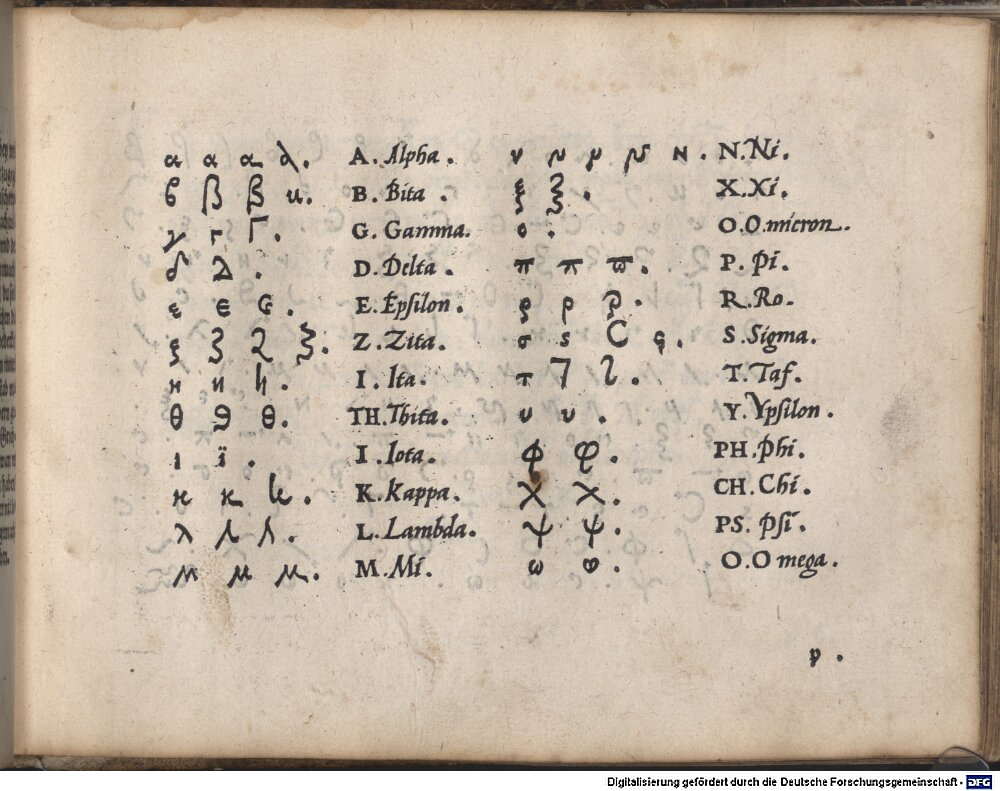 α α α α. A. Alpha. ν ν ν ν ν. N. Ni.
β β β β. B. Bita. ξ ξ. X. Xi.
γ γ Γ. G. Gamma. ο. O. O micron.
δ δ. D. Delta. π π ϖ. P. Pi.
ε ε ε. E. Epſilon. ρ ρ ρ. R. Ro.
ζ ζ ζ ζ. Z. Zita. σ s C ς. S. Sigma.
η η η. I. Ita. τ 7 τ. T. Taf.
θ θ θ. TH. Thita. υ υ. Y. Ypſilon.
ι ϊ. I. Iota. φ φ. PH. Phi.
κ κ κ. K. Kappa. χ χ. CH. Chi.
λ λ λ. L. Lambda. ψ ψ. PS. Pſi.
μ μ μ. M. Mi. ω ω. O. O mega.
p.
Digitalisierung gefördert durch die Deutsche Forschungsgemeinschaft - DFG